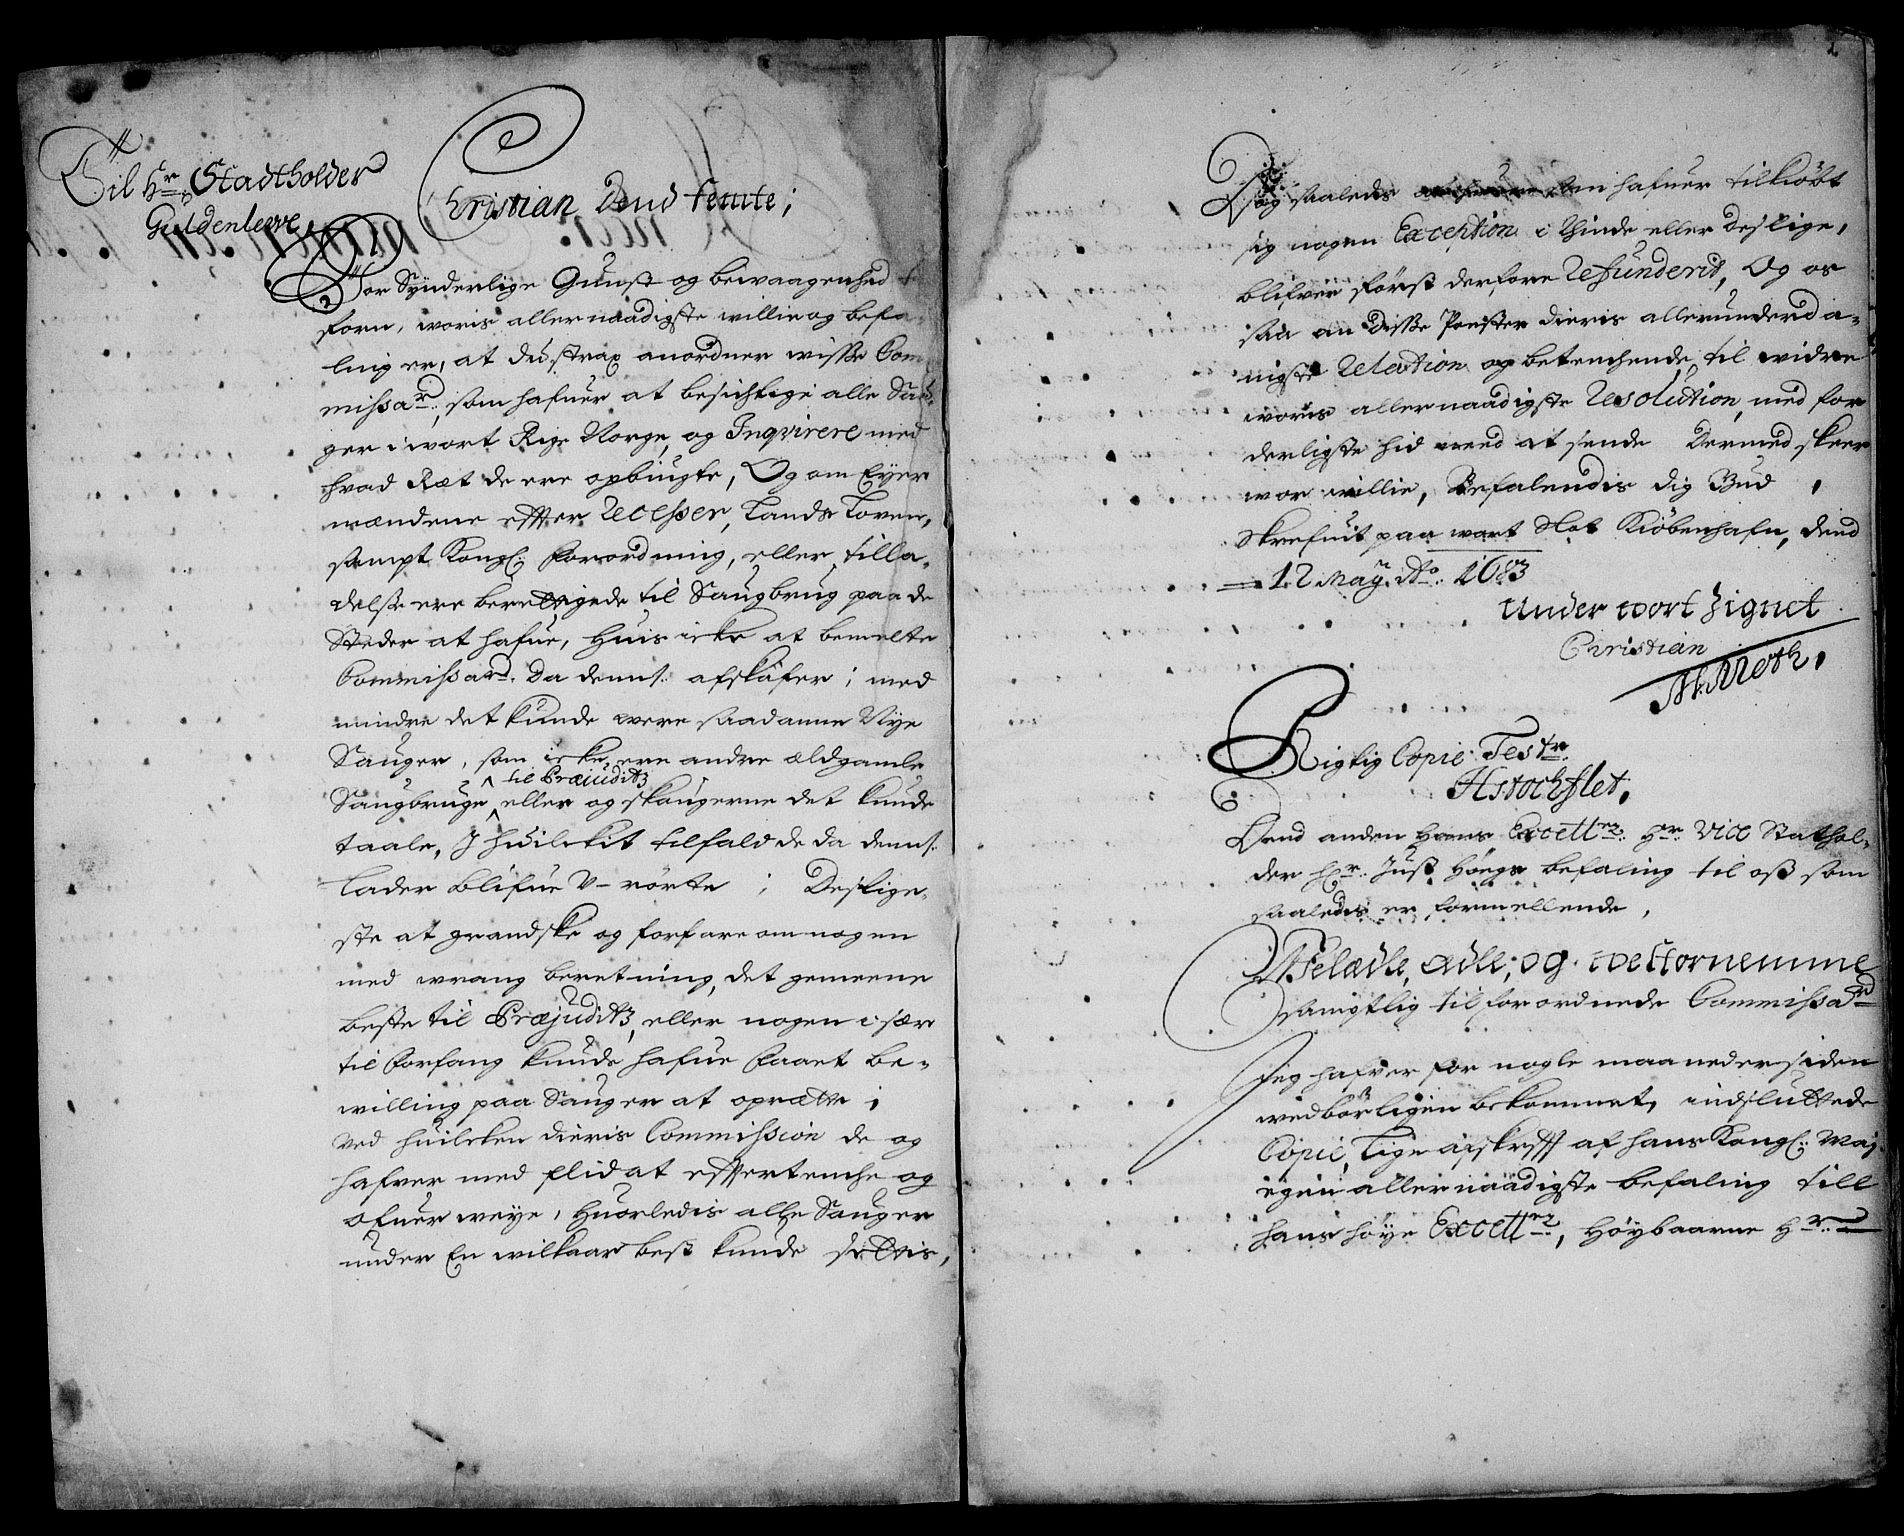 Til Hr Stadtholder
Guldenleewe
Christian Dend femte;
Vor Synderlige Gunst og bewaagenhed
forn, woris allernaadigste willie og befa-
ling er, at du strax anordner wisse Com
missard: som hafuer at besichtige alle Sau
ger i wort Rige Norge, og Inqvirere med
hvad Ræt de ere opbiugte, Og om Eyer
mændene efter Recesser, Lands Loven,
sampt Kongl: forordning, eller tilla-
delse ere berettigede til Saugbrug paa de
Steder at hafue, Huis icke at bemelte
Commissard. Da denns: afskafer; med
mindre det kunde were saadanne Nye
Sauger, som icke ere andre ældgamle
til Præjuditz
Saugbruge eller og skaugerne det kunde
taale, J huilckit tilfald de da denns:
lader blifue V-rørte; Deslige-
ste at grandske og forfare om nogen
med wrang beretning, det gemeene
beste til Præjuditz, eller nogen i sær
til forfang kunde hafue faaet be-
willing paa Sauger at oprætte;
Ved huilcken dieris Commission de og
hafver med flid at eftertenche og
ofuerweye, Huorledis alle Sauger
under En wilkaar best kunde settis,
2
Dog saaledis hafuer tilkiøbt
sig nogen Exception i Thiende eller Deslige,
blifver først derfore Refunderit, Og os
saa an disse Poster dieris allerunderda-
nigste Relation og betenchende til widre
woris allernaadigste Resolution, med for
derligste hid need at sende Dermed skeer
wor willie, Befalendis dig Gud,
Skrefuit paa wort Slot Kiøbenhafn, dend
12 Maÿ. Ao: 1683
Under wort Zignet
Christian
M: Moth.
Rigtig Copie Testr
H Stochflet.
Dend anden Hans Excellce: Hr: Vice Stathol-
der Hr: Just Høegs befaling til oss som
saaledis er formellende,
Welædle, ædle, og welfornemme
samptlig tilforordnede Commissard
Jeg hafver for nogle maaneder siden
wedbørligen bekommet, indsluttede
Copie, lige afskrift af hans Kongl: May
egen allernaadigste befaling till
hans høye Excellce, Høybaarne Hr: